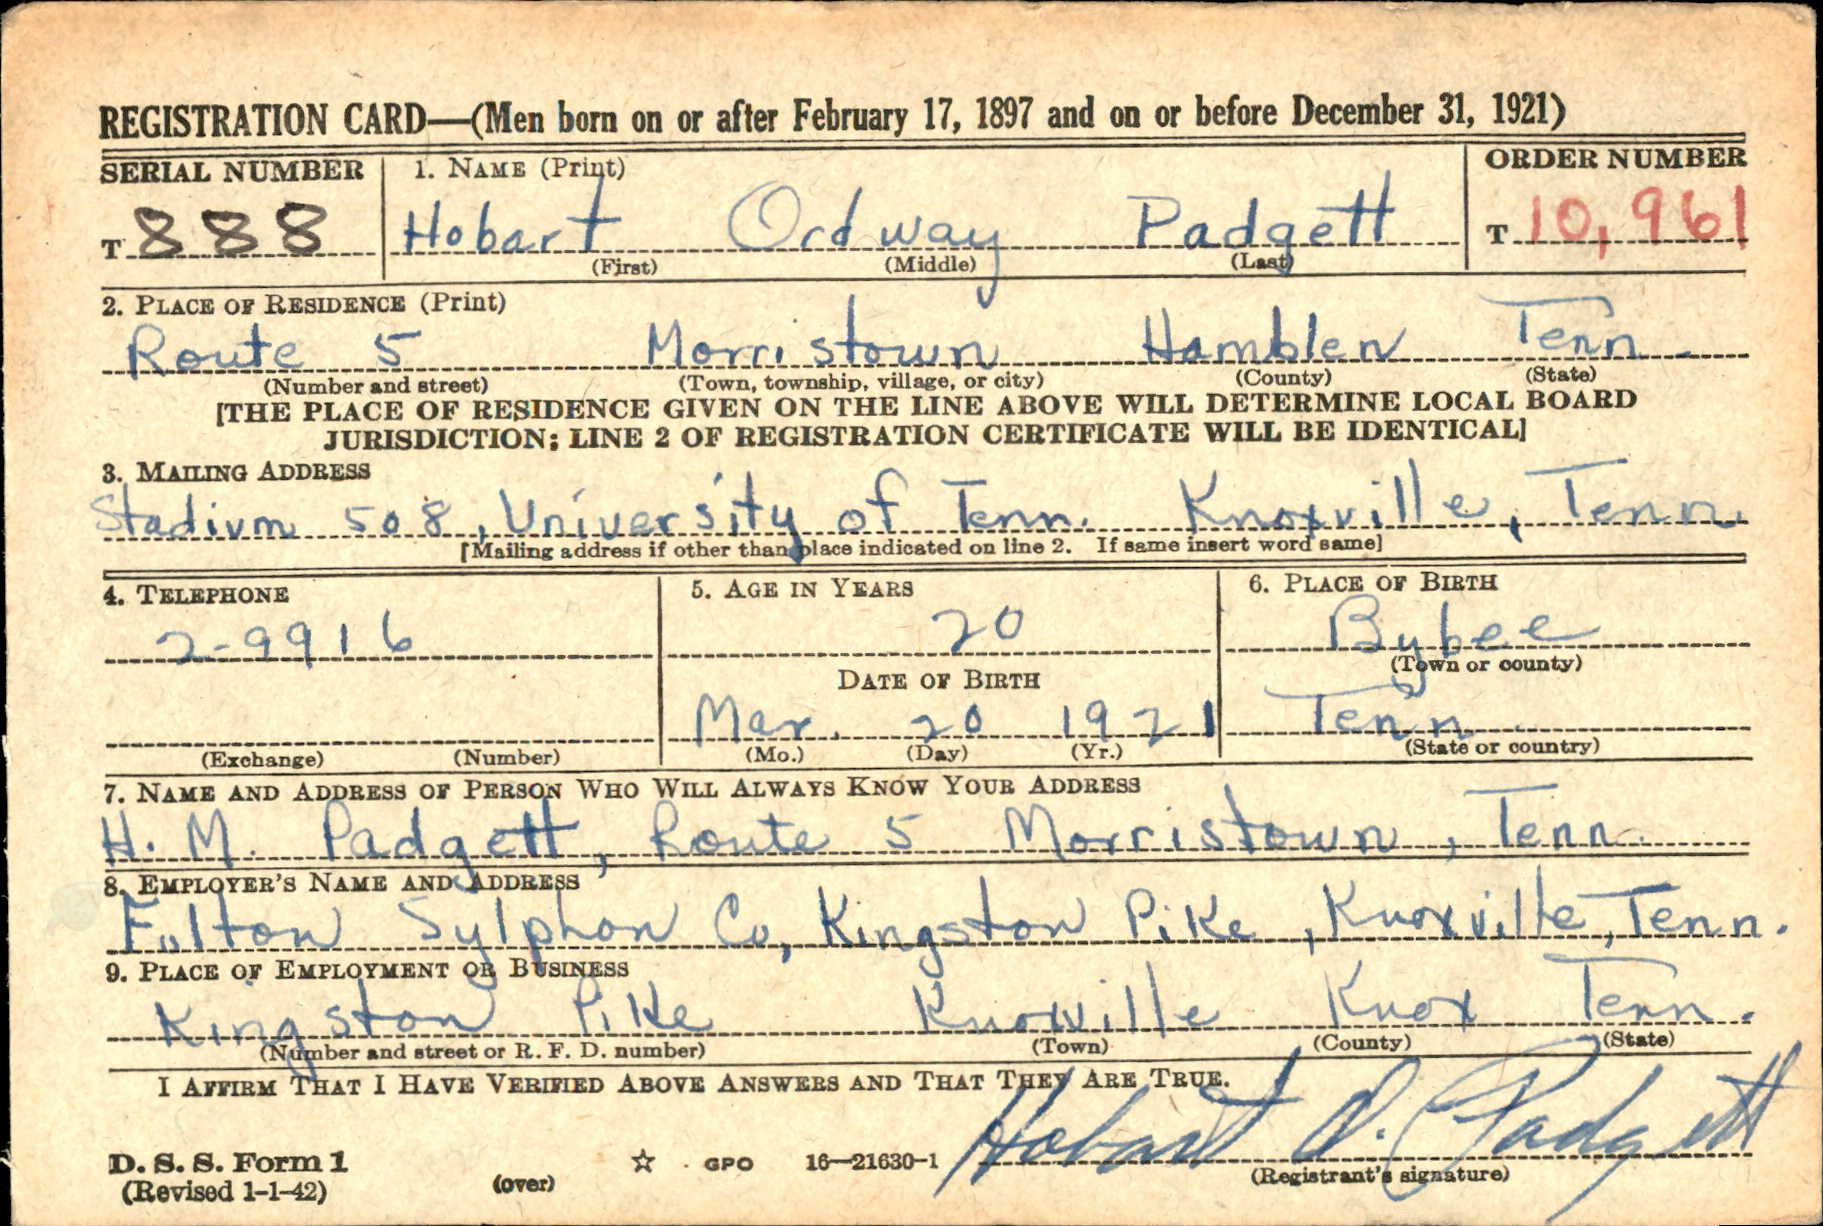 REGISTRATION CARD—(Men born on or after February 17, 1897 and on or before December 31, 1921)
SERIAL NUMBER 1. NAME (Print) ORDER NUMBER
T 888 Hobart Ordway Padgett T 10,961
(First) (Middle) (Last)
2. PLACE OF RESIDENCE (Print)
Route 5 Morristown Hamblen Tenn.
(Number and street) (Town, township, village, or city) (County) (State)
[THE PLACE OF RESIDENCE GIVEN ON THE LINE ABOVE WILL DETERMINE LOCAL BOARD
JURISDICTION; LINE 2 OF REGISTRATION CERTIFICATE WILL BE IDENTICAL]
3. MAILING ADDRESS
Stadium 508, University of Tenn. Knoxville, Tenn.
[Mailing address if other than place indicated on line 2. If same insert word same]
4. TELEPHONE 5. AGE IN YEARS 6. PLACE OF BIRTH
2-9916 20 Bybee
(Town or county)
DATE OF BIRTH
Mar. 20 1921 Tenn.
(Exchange) (Number) (Mo.) (Day) (Yr.) (State or country)
7. NAME AND ADDRESS OF PERSON WHO WILL ALWAYS KNOW YOUR ADDRESS
H. M. Padgett, Route 5 Morristown, Tenn.
8. EMPLOYER'S NAME AND ADDRESS
Fulton Sylphon Co, Kingston Pike, Knoxville, Tenn.
9. PLACE OF EMPLOYMENT OR BUSINESS
Kingston Pike Knoxville Knox Tenn.
(Number and street or R. F. D. number) (Town) (County) (State)
I AFFIRM THAT I HAVE VERIFIED ABOVE ANSWERS AND THAT THEY ARE TRUE.
Hobart O. Padgett
D. S. S. Form 1 GPO 16—21630-1 (Registrant's signature)
(Revised 1-1-42) (over)